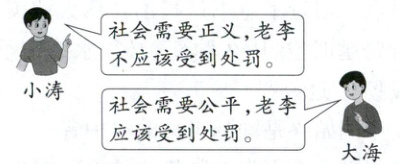 社会需要正义,老李
不应该受到处罚。
小涛
社会需要公平,老李
应该受到处罚。
大海